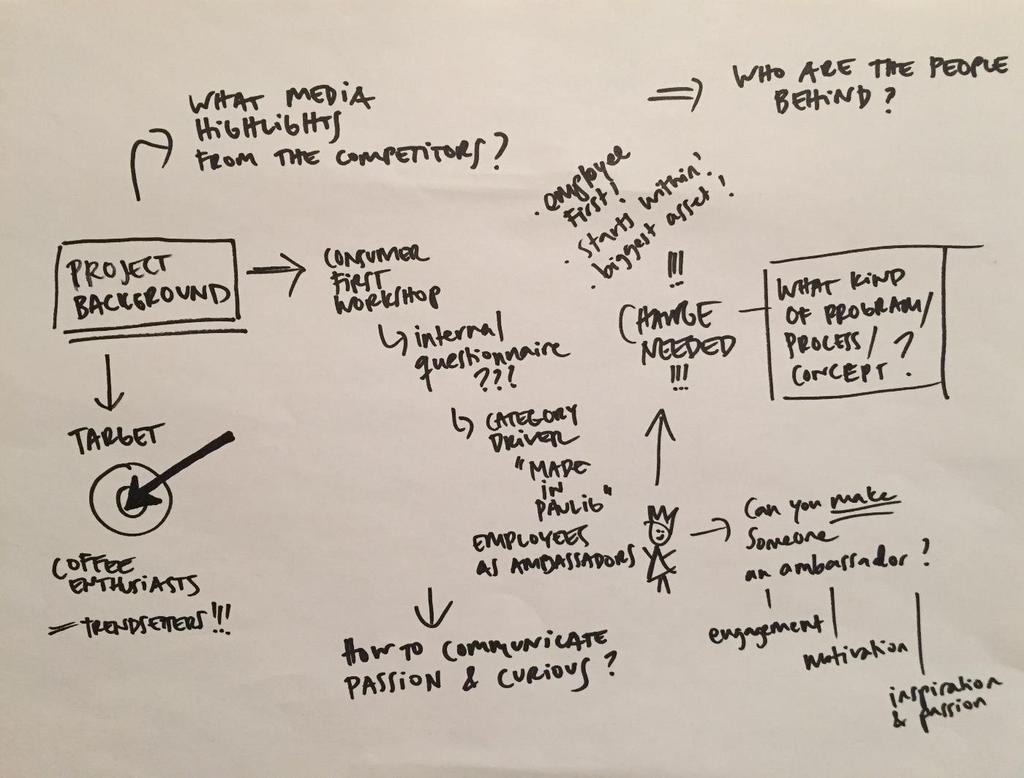 WHAT MEDIA
HIGHLIGHTS
FROM THE COMPETITORS?
⇒ WHO ARE THE PEOPLE
BEHIND?
PROJECT
BACKGROUND
→ CONSUMER
FIRST
WORKSHOP
↳ internal
questionnaire
???
↳ CATEGORY
DRIVER
"MADE
IN
PAULIG"
EMPLOYEES
AS AMBASSADORS
↓
HOW TO COMMUNICATE
PASSION & CURIOUS?
TARGET
COFFEE
ENTHUSIASTS
= TRENDSETTERS!!!
· employee
first!
· starts within!
· biggest asset!
!!!
CHANGE
NEEDED
!!!
WHAT KIND
OF PROGRAM/
PROCESS/
CONCEPT?
→ Can you make
someone
an ambassador?
engagement
motivation
inspiration
& passion